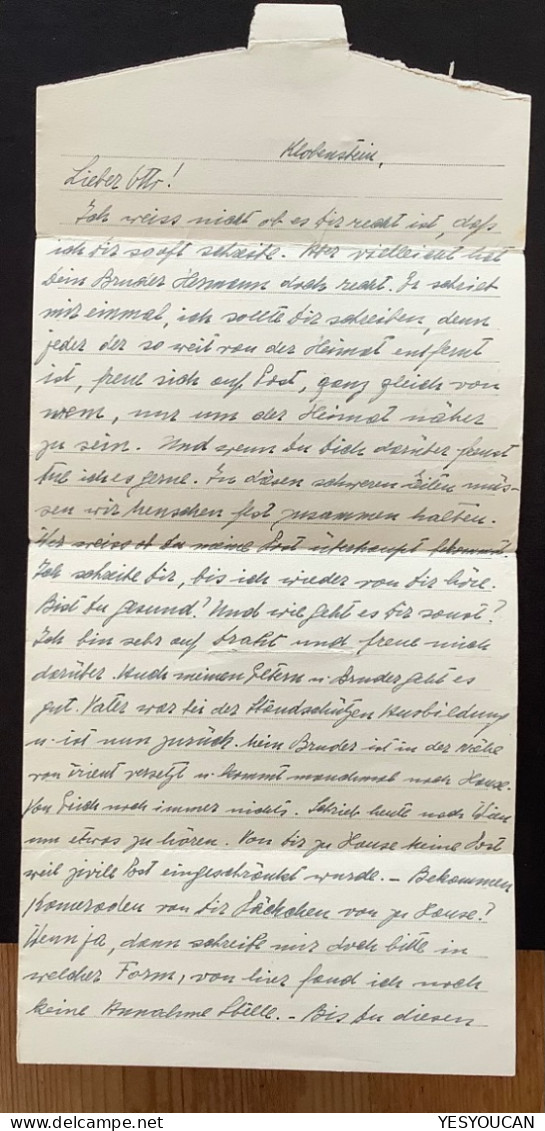 Klobenstein,
Lieber Otto!
Ich weiss nicht ob es Dir recht ist, dass
ich Dir so oft schreibe. Aber vielleicht hat
Dein Bruder Hermann doch recht. Er schrieb
mir einmal, ich sollte Dir schreiben, denn
jeder der so weit von der Heimat entfernt
ist, freue sich auf Post, ganz gleich von
wem, nur um der Heimat näher
zu sein. Und wenn Du Dich darüber freust
tue ich es gerne. In diesen schweren Zeiten müs-
sen wir Menschen fest zusammen halten.
Wer weiss ob Du meine Post überhaupt bekommst?
Ich schreibe Dir, bis ich wieder von Dir höre.
Bist Du gesund? Und wie geht es Dir sonst?
Ich bin sehr auf Draht und freue mich
darüber. Auch meinen Eltern u. Bruder geht es
gut. Vater war bei der Standschützen Ausbildung
u. ist nun zurück. Mein Bruder ist in der Nähe
von Trient versetzt u. kommt manchmal nach Hause.
Von Erich noch immer nichts. Schrieb heute nach Wien
um etwas zu hören. Von Dir zu Hause keine Post
weil zivile Post eingeschränkt wurde. – Bekommen
Kameraden von Dir Päckchen von zu Hause?
Wenn ja, dann schreibe mir doch bitte in
welcher Form, von hier fand ich noch
keine Annahme Stelle. – Bis Du diesen
YESYOUCAN